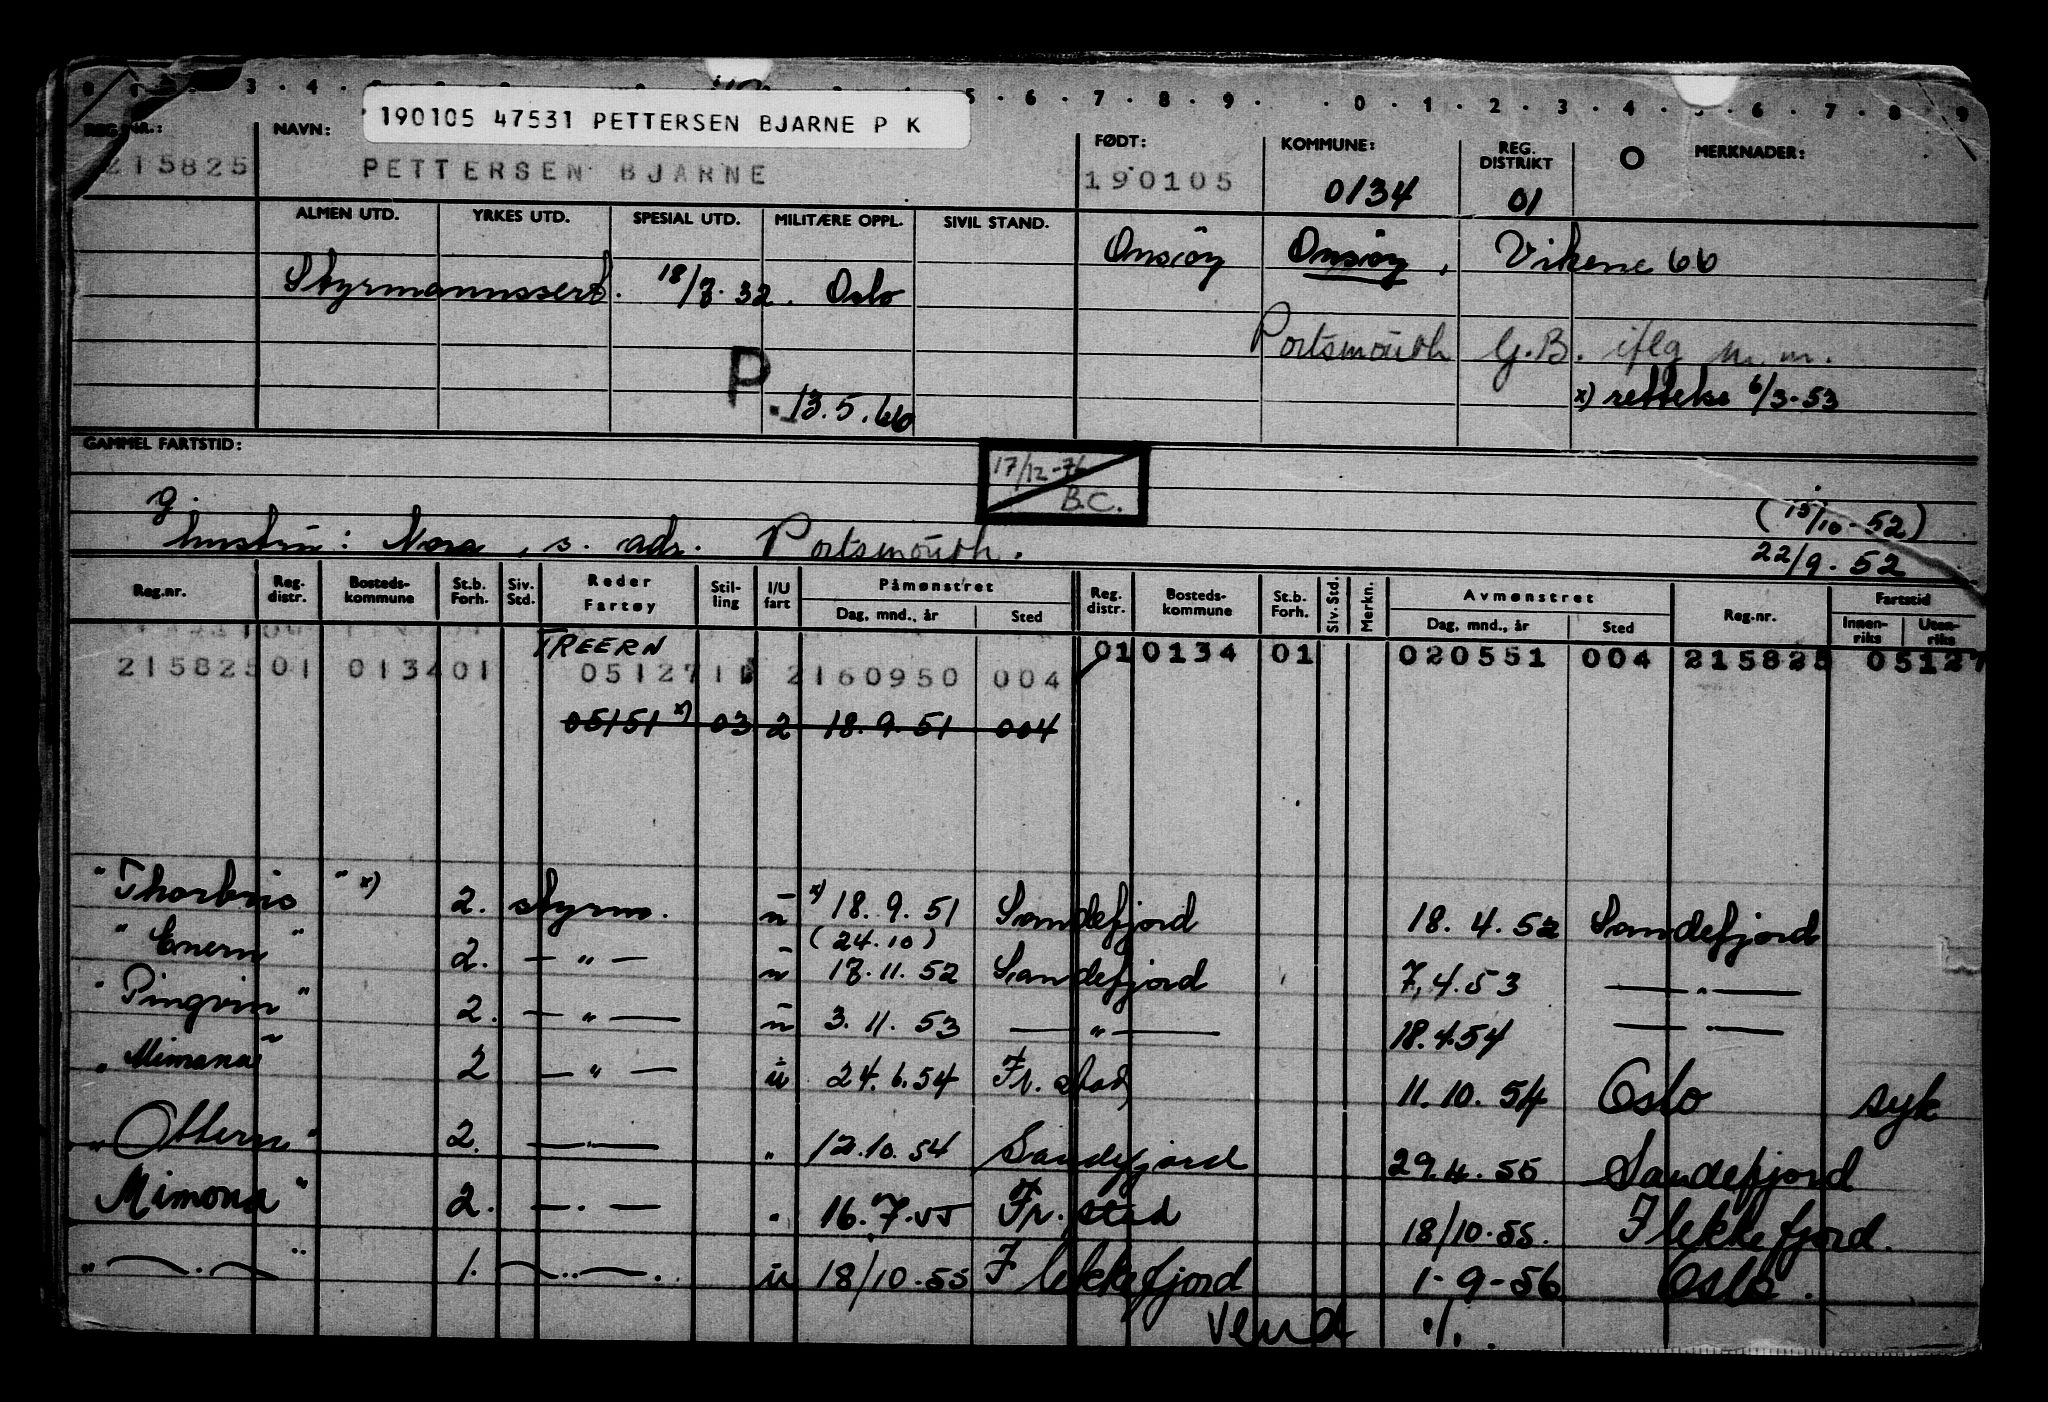 190105 47531 PETTERSEN BJARNE P K
REG. NR.: NAVN: FØDT: KOMMUNE: REG. DISTRIKT O MERKNADER:
215825 PETTERSEN BJARNE 190105 0134 01
ALMEN UTD. YRKES UTD. SPESIAL UTD. MILITÆRE OPPL. SIVIL STAND.
Onsöy Onsöy, Vikene 66
Styrmannssert. 18/7.32. Oslo
Portsmouth G.B. iflg m.m.
P
13.5.66
x) rettelse 6/3-53
GAMMEL FARTSTID:
17/12-76
B.C.
g.
(15/10-52)
hustru: Nora, s. adr. Portsmouth.
22/9.52
Reg.nr. Reg. distr. Bosteds-kommune St.b. Forh. Siv. Std. Reder Fartøy Stil-ling I/U fart Påmønstret Dag, mnd., år Sted Reg. distr. Bosteds-kommune St.b. Forh. Siv. Std. Merkn. Avmønstret Dag, mnd., år Sted Reg.nr. Fartstid Innen-riks Uten-riks
TREERN
215825 01 0134 01 05127 11 2 160950 004 01 0134 01 020551 004 215825 05127
05151 x) 03 2 18.9.51 004
"Thorbris" x) 2. styrm. u x) 18.9.51 Sandefjord 18.4.52 Sandefjord
(24.10)
"Enern" 2. — " — u 17.11.52 Sandefjord 7.4.53 — " —
"Pingvin" 2. — " — u 3.11.53 — " — 18.4.54 — " —
"Mimona" 2 — " — u 24.6.54 Fr.stad 11.10.54 Oslo syk
"Ottern" 2. — " — " 12.10.54 Sandefjord 29.4.55 Sandefjord
Mimona" 2. — " — " 16.7.55 Fr.stad 18/10.55. Flekkefjord.
" — " — " 1. — " — u 18/10.55 Flekkefjord 1-9-56 Oslo.
Vend ./.